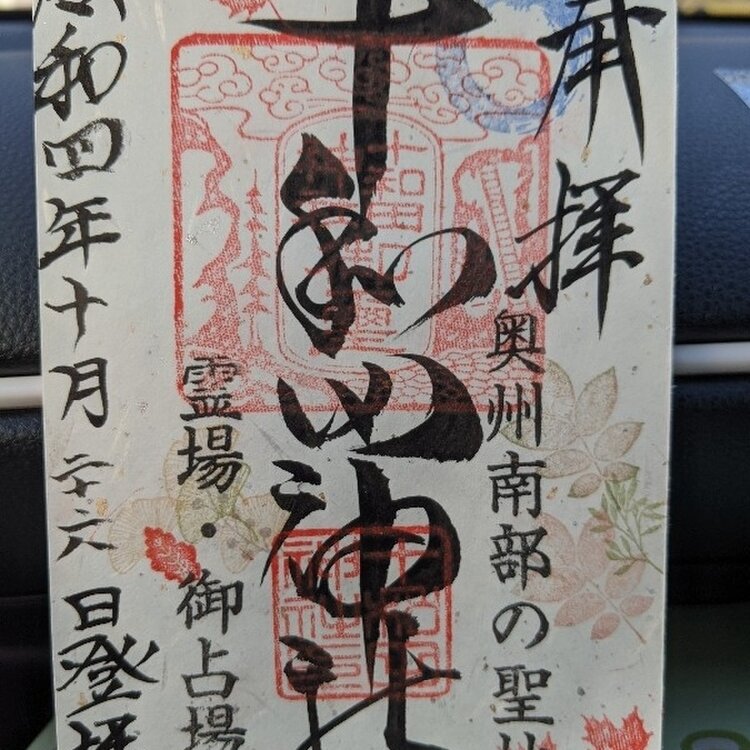 奉拝
奥州南部の聖
十和田神社
霊場・御占場
令和四年十月二十六日登拝